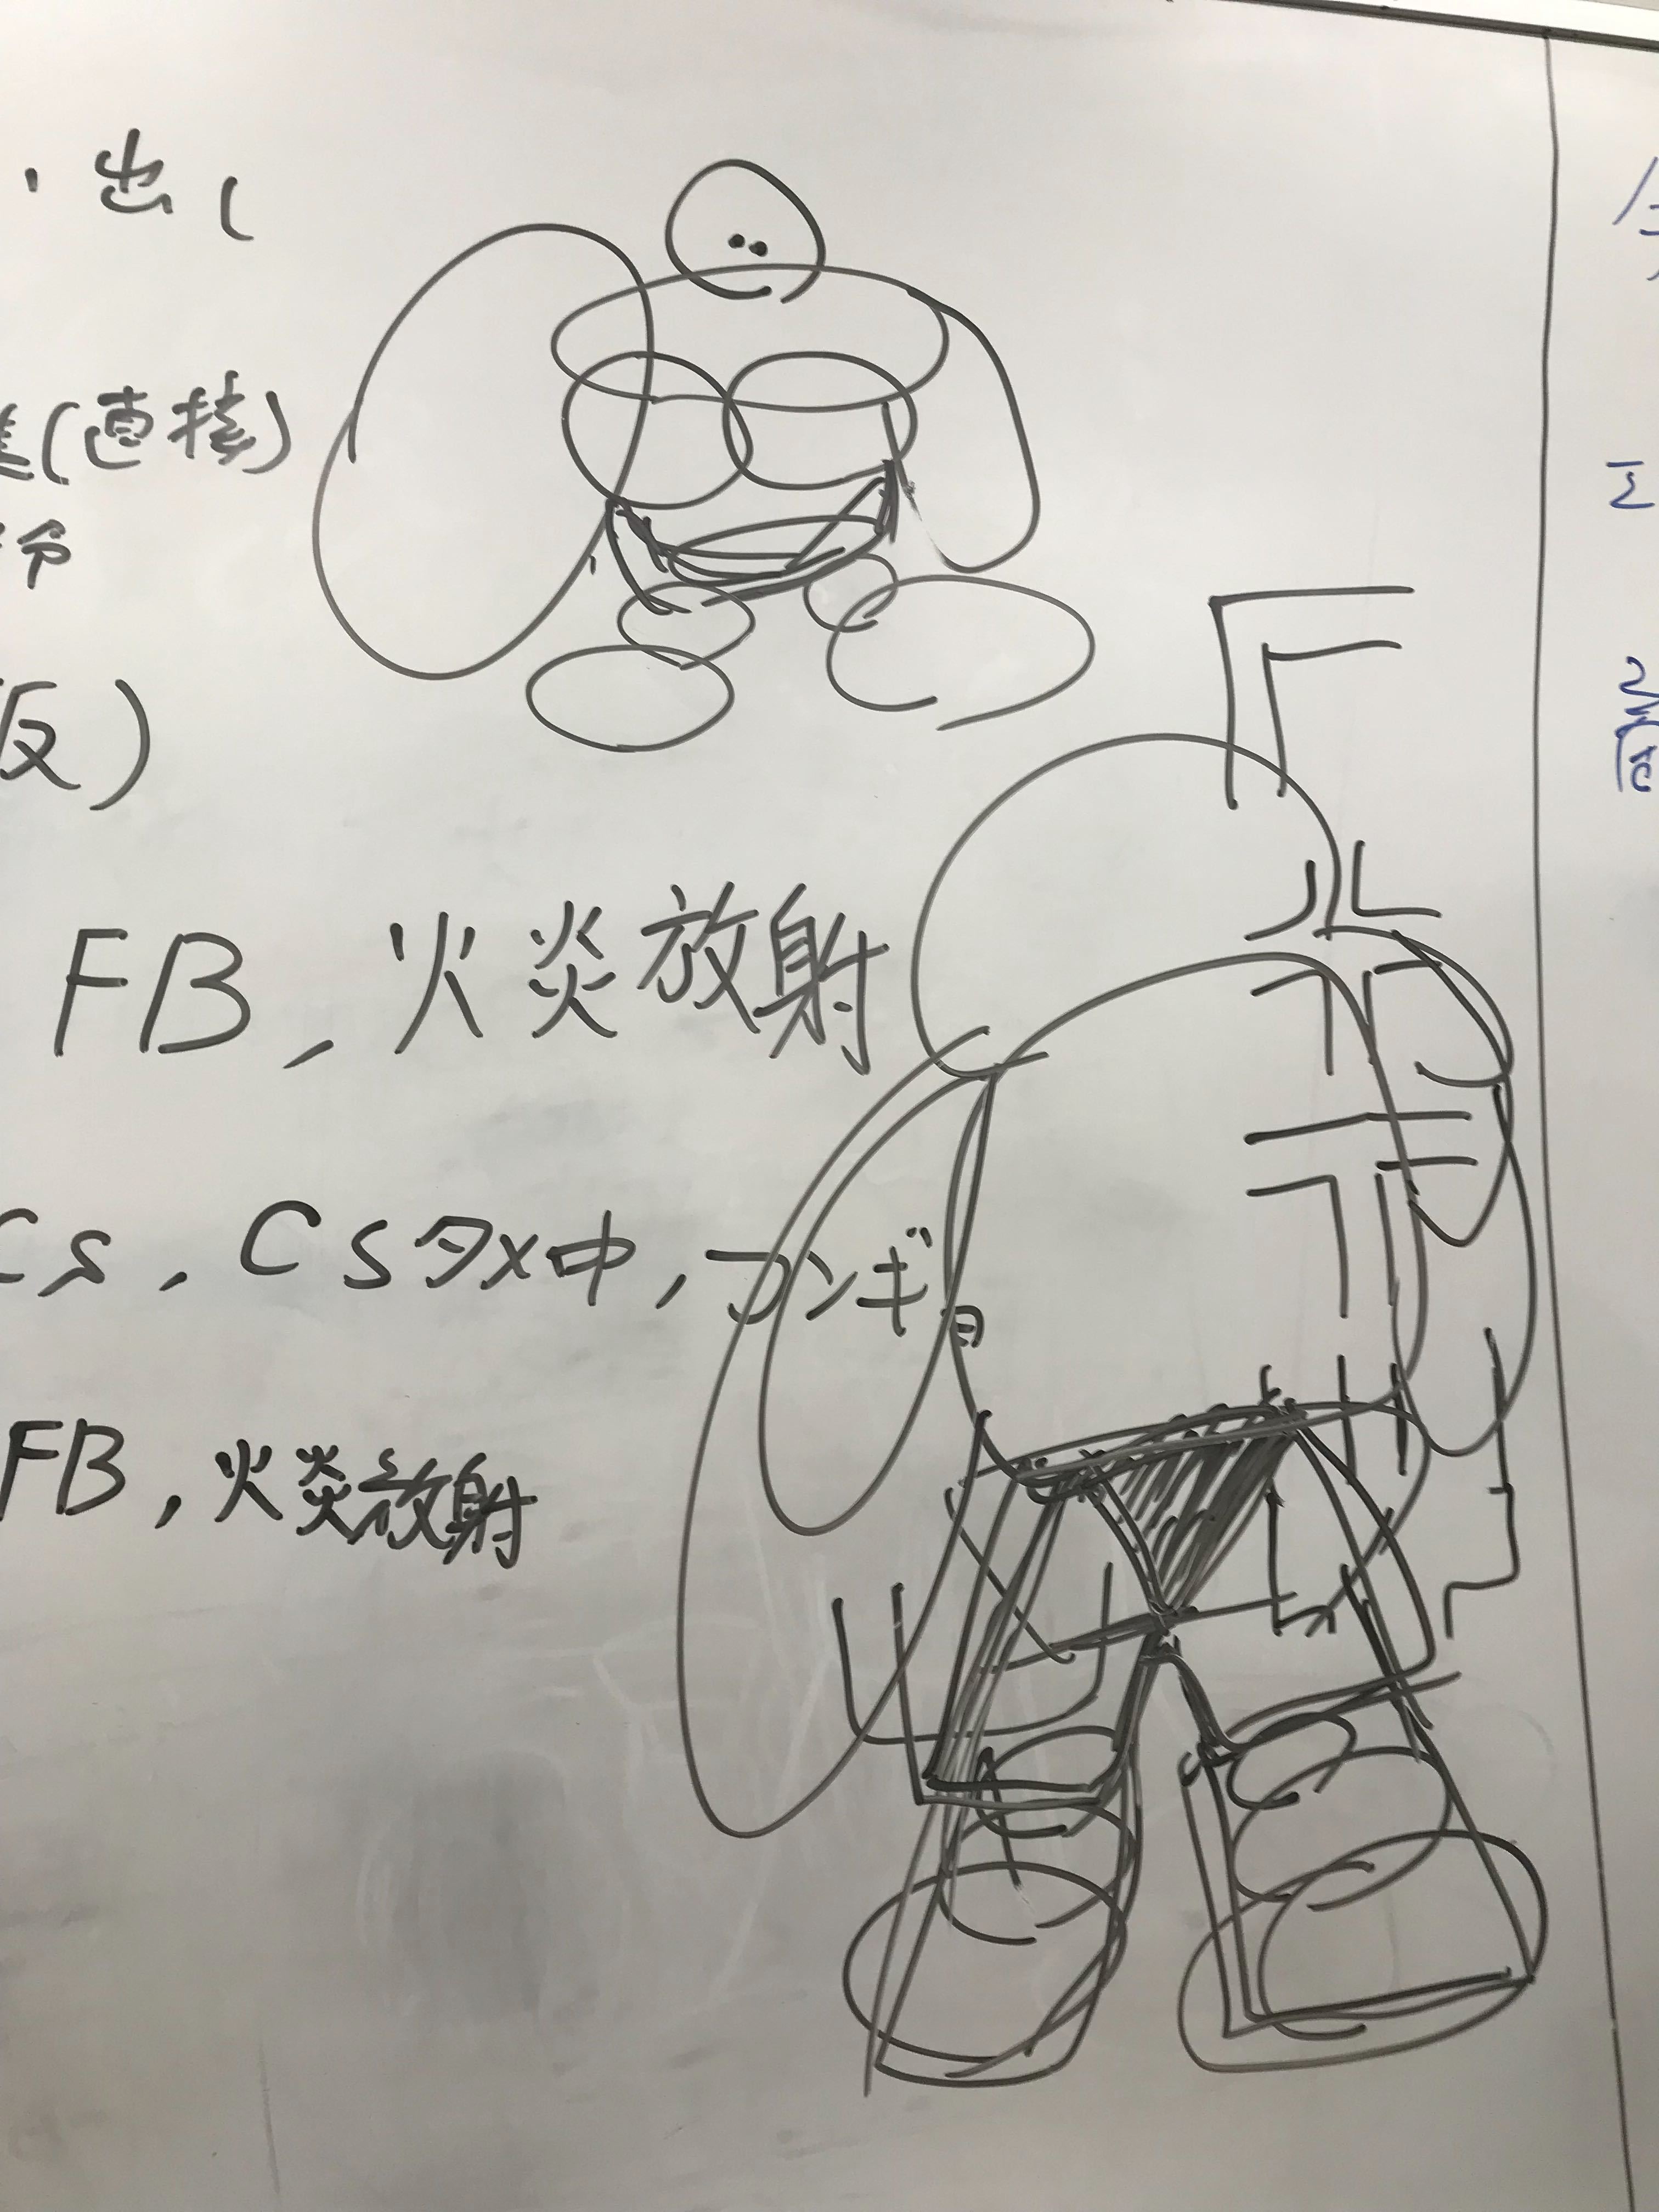 出し
(直接)
反)
FB, 火炎放射
CS, CSタメ中, コンギョ
FB, 火炎放射